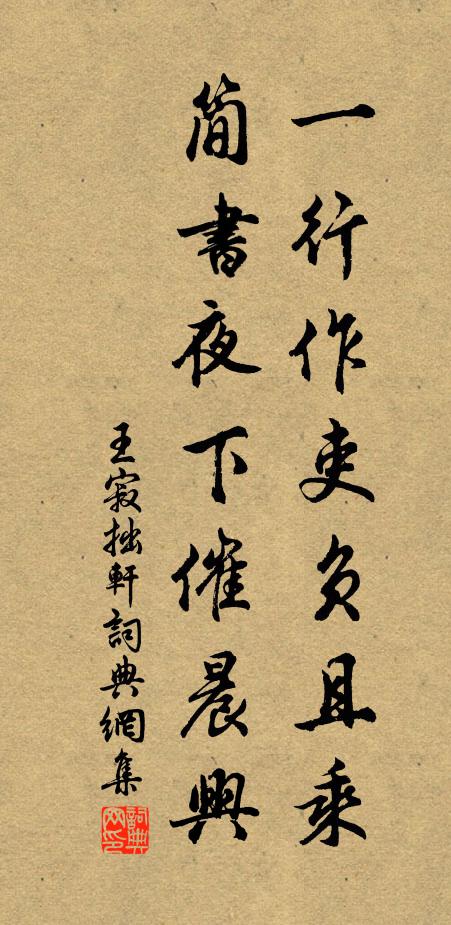 一行作吏負且乘
簡書夜下催晨興
王寂拙軒詞典網集
詞典网印